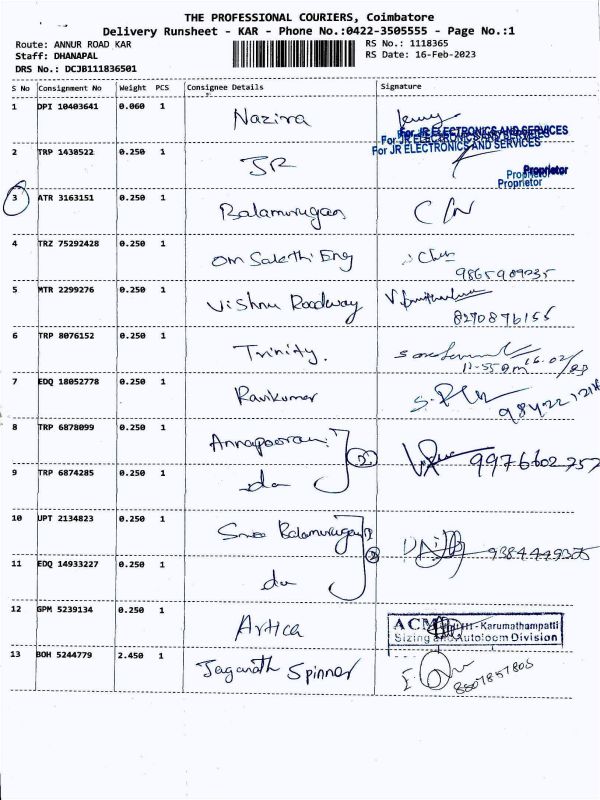 THE PROFESSIONAL COURIERS, Coimbatore
Delivery Runsheet - KAR - Phone No.:0422-3505555 - Page No.:1
Route: ANNUR ROAD KAR
RS No.: 1118365
Staff: DHANAPAL
RS Date: 16-Feb-2023
DRS No.: DCJB111836501
S No Consignment No Weight PCS Consignee Details Signature
1 DPI 10403641 0.060 1 Nazira
For JR ELECTRONICS AND SERVICES
For JR ELECTRONICS AND SERVICES
For JR ELECTRONICS AND SERVICES
2 TRP 1438522 0.250 1 JR
Proprietor
Proprietor
Proprietor
3 ATR 3163151 0.250 1 Balamurugan
4 TRZ 75292428 0.250 1 Om Sakthi Eng
5 MTR 2299276 0.250 1 Vishnu Roadway
8270876155
6 TRP 8076152 0.250 1 Trinity.
7 EDQ 18052778 0.250 1 Ravikumar
8 TRP 6878099 0.250 1 Annapoorani
9976602757
9 TRP 6874285 0.250 1 do
10 UPT 2134823 0.250 1 Sree Balamurugan
11 EDQ 14933227 0.250 1 do
12 GPM 5239134 0.250 1 Artica
- Karumathampatti
Sizing and Autoloom Division
13 BOH 5244779 2.450 1 Jaganath Spinner
8807857805